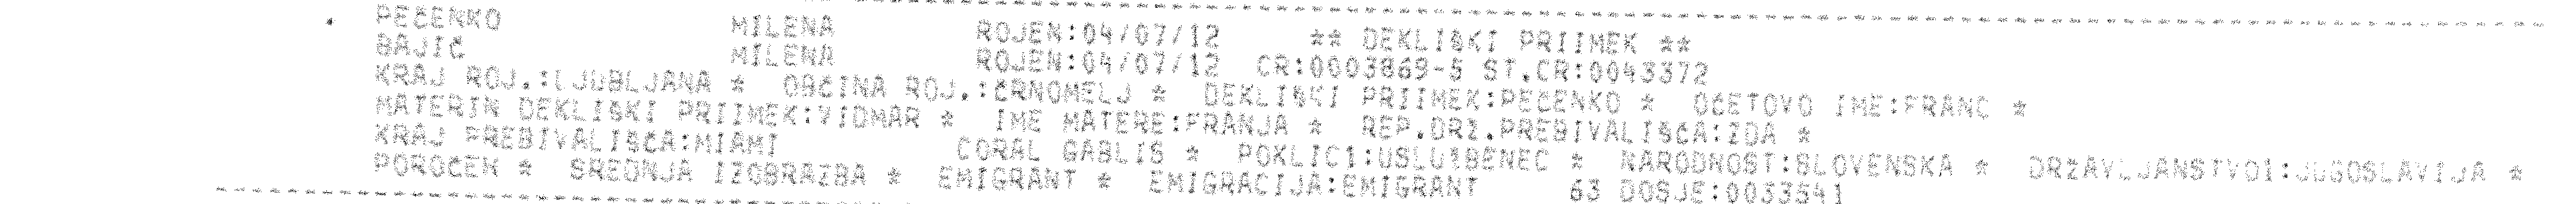 PEČENKO MILENA ROJEN:04/07/12 ** DEKLIŠKI PRIIMEK **
BAJIČ MILENA ROJEN:04/07/12 CR:0003869-5 ST.CR:0043372
KRAJ ROJ.:LJUBLJANA * OBČINA ROJ.:ČRNOMELJ * DEKLIŠKI PRIIMEK:PEČENKO * OČETOVO IME:FRANC *
MATERIN DEKLIŠKI PRIIMEK:VIDMAR * IME MATERE:FRANJA * REP.DRŽ.PREBIVALIŠČA:ZDA *
KRAJ PREBIVALIŠČA:MIAMI CORAL GABLIS * POKLIC1:USLUŽBENEC * NARODNOST:SLOVENSKA * DRŽAVLJANSTVO1:JUGOSLAVIJA *
POROČEN * SREDNJA IZOBRAZBA * EMIGRANT * EMIGRACIJA:EMIGRANT 63 DOSJE:0033541